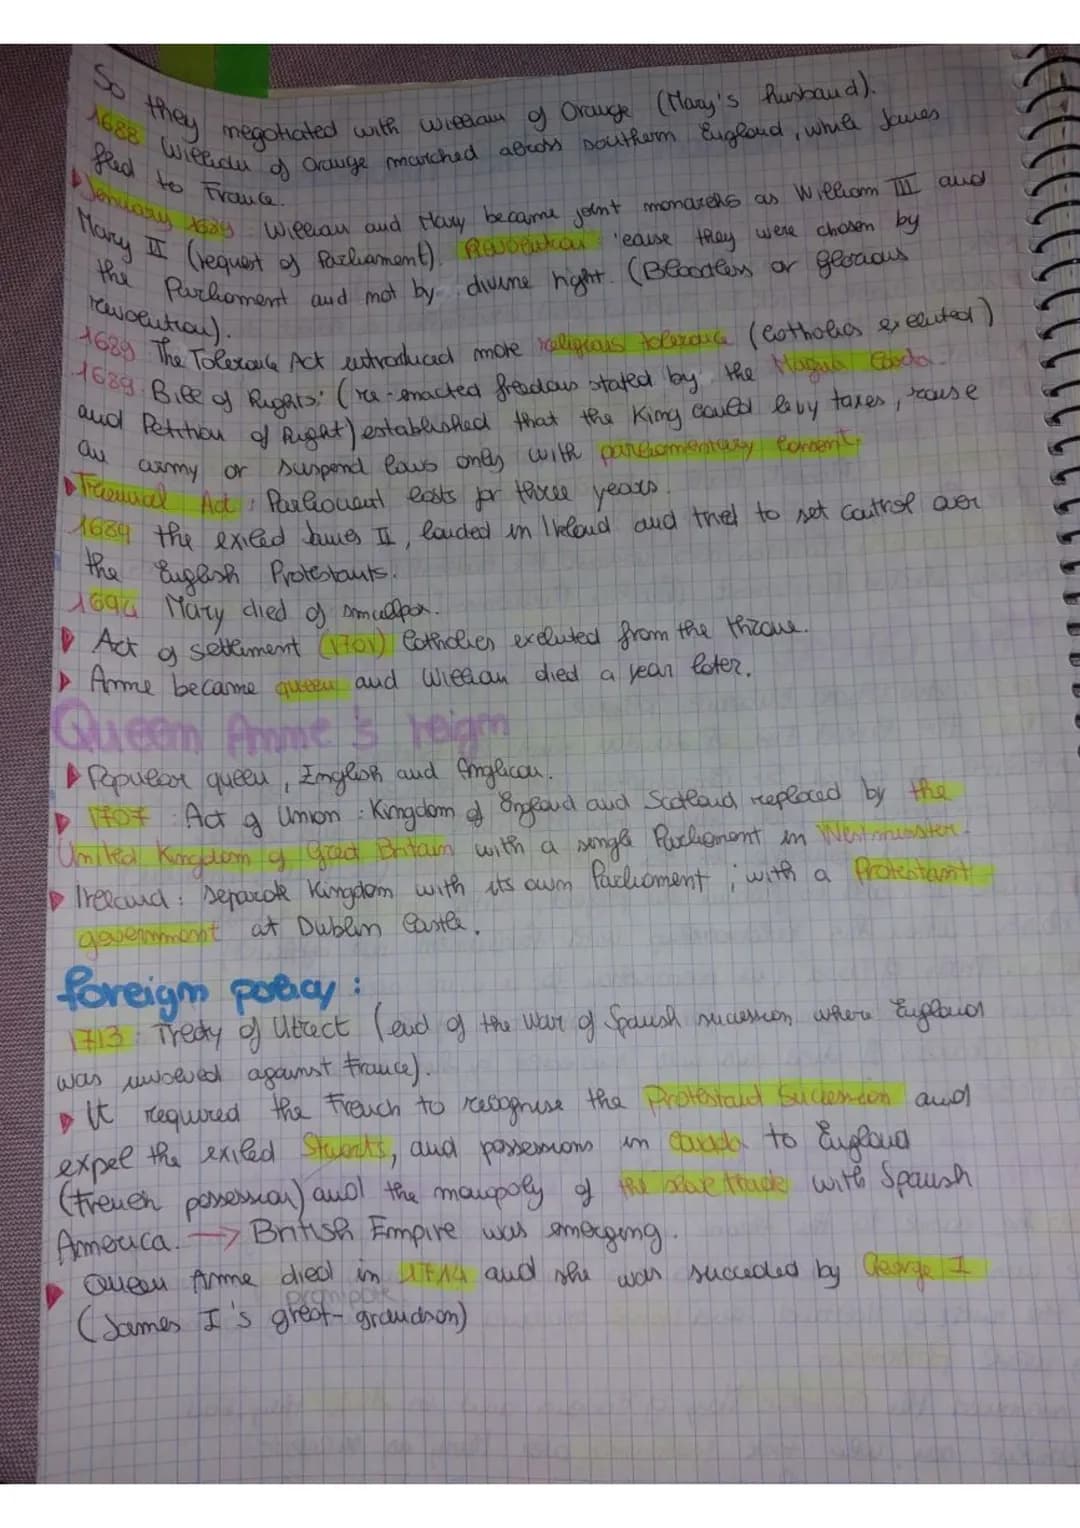 So they negotiated with William of Orange (Mary's husband).
1688 William of Orange marched across southern England, while James
fled to France.
January 1689: William and Mary became joint monarchs as William III and
Mary II (request of Parliament). Revolution 'cause they were chosen by
the Parliament and not by divine right. (Bloodless or glorious
revolution).
1689 The Tolerance Act introduced more religious tolerance (Catholics excluted)
1689: Bill of Rights: (re-enacted freedoms stated by the Magna Carta
and Petition of Right) established that the King could levy taxes, raise
an army or suspend laws only with parliamentary consent.
Triennial Act: Parliament lasts for three years.
1689 the exiled James II, landed in Ireland and tried to set control over
the English Protestants.
1694 Mary died of smallpox.
Act of settlement (1701) Catholics excluted from the throne.
Anne became queen and William died a year later.
Queen Anne's reign
Popular queen, English and Anglican.
1707: Act of Union: Kingdom of England and Scotland replaced by the
United Kingdom of Great Britain with a single Parliament in Westminster.
Ireland: separate Kingdom with its own Parliament; with a Protestant
government at Dublin Castle.
foreign policy:
1713: Treaty of Utrect (end of the War of Spanish succession where England
was involved against France).
It required the French to recognise the Protestant Succession and
expel the exiled Stuarts, and possessions in Canada to England
(French possession) and the monopoly of the slave trade with Spanish
America. → British Empire was emerging.
Queen Anne died in 1714 and she was succeded by George I
(James I's great-grandson)